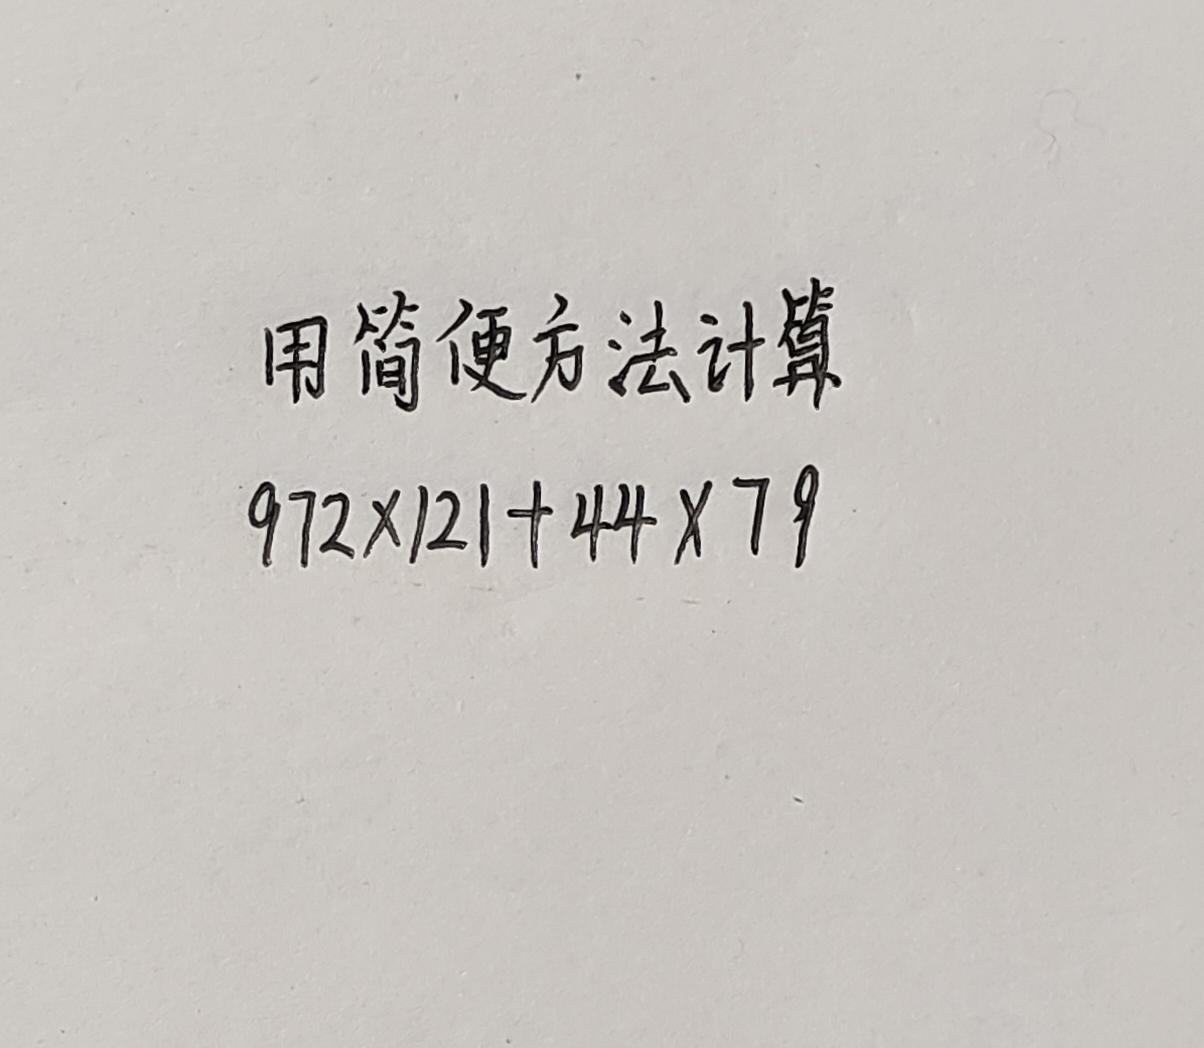 用简便方法计算
972×121+44×79